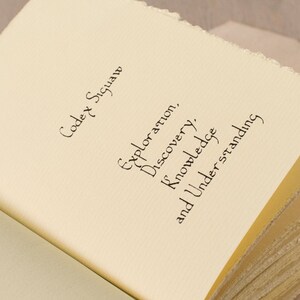 Codex Siguaw
Exploration,
Discovery,
Knowledge
and Understanding